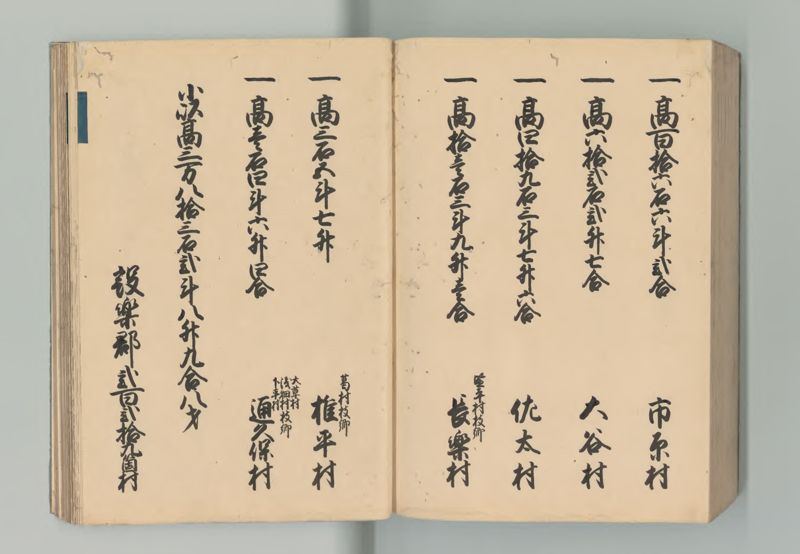 一高百拾六石六斗弐合 市原村
一高六拾弐石弐升七合 大谷村
一高四拾九石三斗七升六合 佐太村
一高拾壱石三斗九升壱合 長楽村
平村枝郷
一高三石五斗七升 椎平村
葛村枝郷
一高壱石四斗六升四合 通久保村
大草村
浅畑村枝郷
下平村
小以高三万八拾三石弐斗八升九合八才
設楽郡弐百弐拾九箇村